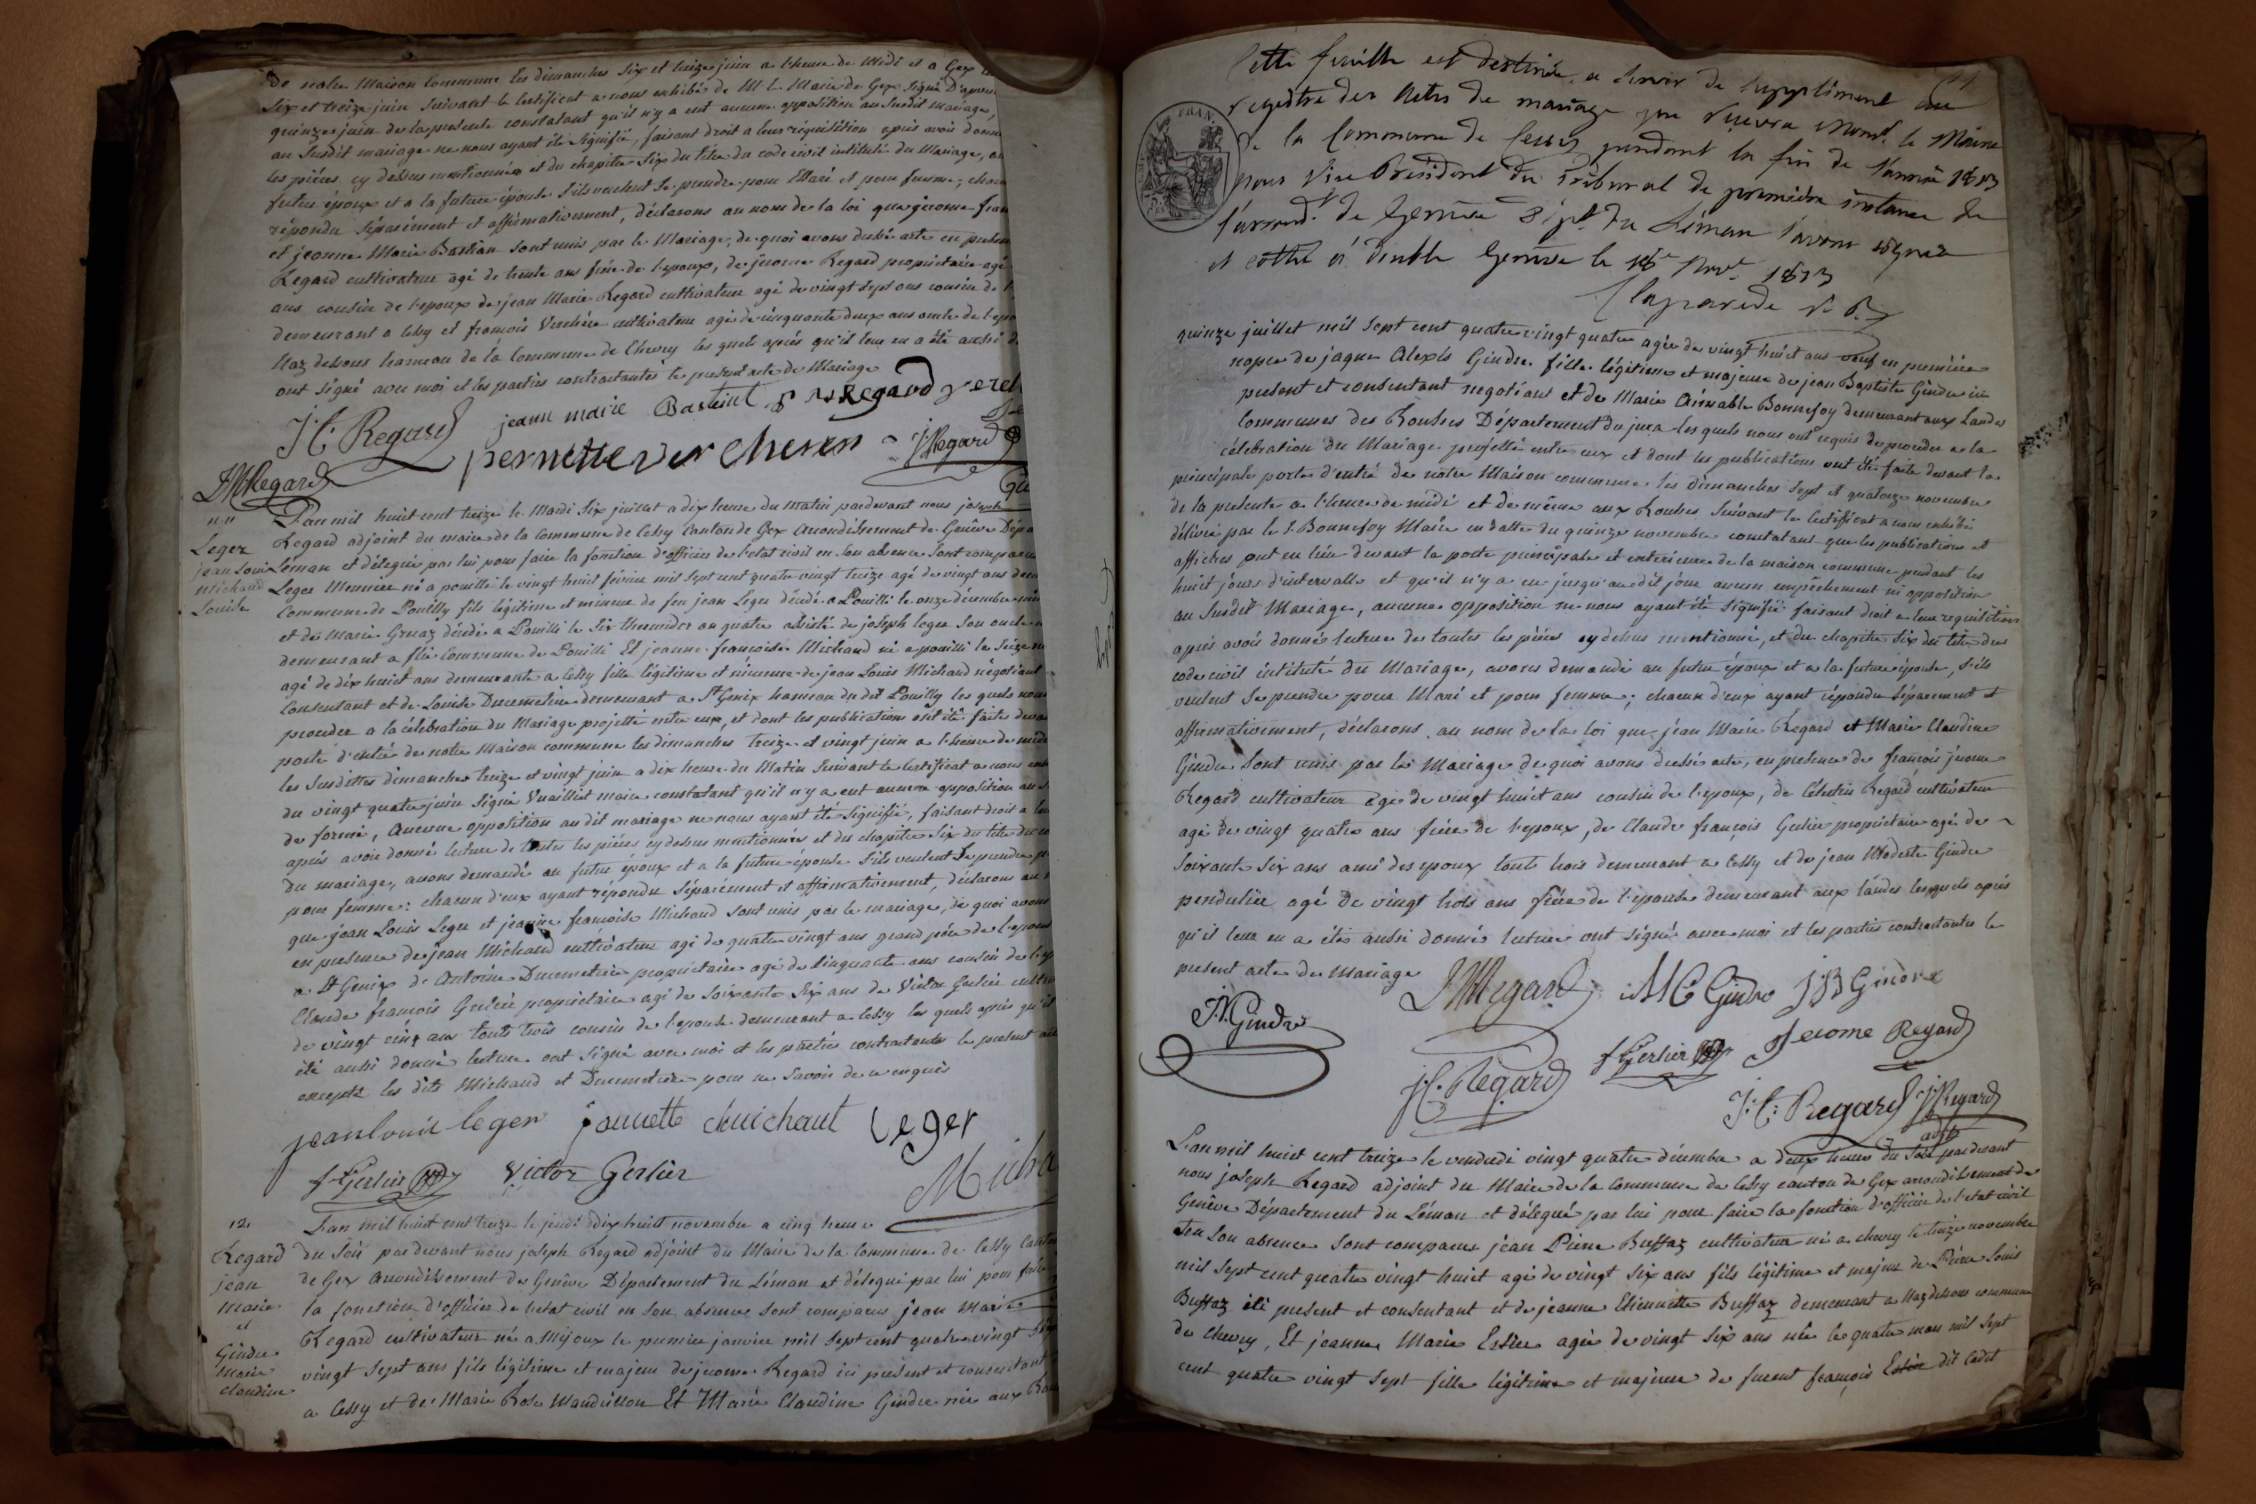 De notre Maison Commune les dimanches six et treize juin a l'heure de Midi et a Gex
six et treize juin suivant le Certificat a nous exhibé de M. le Maire de Gex signé
quinze juin de la presente constatant qu'il n'y a eut aucune opposition au susdit mariage,
au susdit mariage ne nous ayant été signifié, faisant droit a leur réquisition après avoir donné
les pièces cy dessus mentionnées et du chapitre six du titre du code civil intitulé du Mariage,
futur époux et a la future épouse s'ils veulent se prendre pour Mari et pour femme; chacun
répondu séparément et affirmativement, déclarons au nom de la loi que jerome fran
et jeanne Marie Bastian sont unis par le Mariage, de quoi avons dressé acte en presence
Regard cultivateur agé de trente ans frère de l'epoux, de jerome Regard proprietaire agé
ans cousin de l'epoux de jean Marie Regard cultivateur agé de vingt sept ans cousin de
demeurant a Cessy et francois Verchère cultivateur agé de cinquante deux ans oncle de l'epo
Naz dessous hameau de la Commune de Chevry les quels après qu'il leur en a été aussi
ont signé avec moi et les parties contractantes le present acte de Mariage
J: C: Regard jeann maire Bastient Regard
pernette ver Cheren J Regard
JM Regard
n. 11
Leger
jean Louis
Michaud
Louise
L'an mil huit cent treize le Mardi six juillet a dix heure du matin pardevant nous joseph
Regard adjoint du maire de la Commune de Cessy Canton de Gex Arrondissement de Genève Dépa
Léman et délégué par lui pour faire la fonction d'officier de l'etat civil en son absence sont comparus
Leger Meunier né a pouilli le vingt huit février mil sept cent quatre vingt treize agé de vingt ans
Commune de Pouilly fils légitime et mineur de feu jean Leger décédé a Pouilli le onze décembre
et de Marie Gruaz décédé a Pouilli le six thermidor an quatre assisté de joseph leger son oncle
demeurant a flie Commune de Pouilli Et jeanne francoise Michaud né a pouilli le seize
agé de dix huit ans demeurante a Cessy fille légitime et mineure de jean Louis Michaud négotiant
consentant et de Louise Ducimetière demeurant a St Genix hameau du dit Pouilly les quels nous
proceder a la célebration du Mariage projetté entre eux, et dont les publications ont été faites deva
porte d'entrée de notre Maison commune les dimanches treize et vingt juin a l'heure de midi
les susdittes dimanches treize et vingt juin a dix heure du Matin suivant le Certificat a nous
du vingt quatre juin signé Vuaillet maire constatant qu'il n'y a eut aucune opposition au
de formé, Aucune opposition au dit mariage ne nous ayant été signifié, faisant droit a leur
après avoir donné lecture de toutes les pièces cy dessus mentionnés et du chapitre six du titre du co
du mariage, avons demandé au futur époux et a la future épouse s'ils veulent se prendre p
pour femme: chacun d'eux ayant répondu séparément et affirmativement, déclarons au
que jean Louis Leger et jeanne francoise Michaud sont unis par le mariage, de quoi avons
en presence de jean Michaud cultivateur agé de quatre vingt ans grand père de l'epouse
a St Genix de Antoine Ducimetière propriétaire agé de cinquante ans cousin de l'ep
Claude françois Gerlier propriétaire agé de soixante six ans de Victor Gerlier cultiv
de vingt cinq ans touts trois cousins de l'epouse demeurant a Cessy les quels après qu'il
été aussi donné lecture ont signé avec moi et les parties contractantes le present
excepté les dits Michaud et Ducimetière pour ne savoir de ce enquis
jean louis leger jannette Michaut Leger
f Gerlier Victor Gerlier Micha
12.
Regard
jean
Marie
et
Gindre
Marie
claudine
L'an mil huit cent treize le jeudi dix huitt novembre a cinq heure
du soir par devant nous joseph Regard adjoint du Maire de la Commune de Cessy Canton
de Gex Arrondissement de Genève Département du Léman et délégué par lui pour faire
la fonction d'officier de l'etat civil en son absence sont comparus jean Marie
Regard cultivateur né a Mijoux le premier janvier mil sept cent quatre vingt
vingt sept ans fils légitime et majeur de jerome Regard ici présent et consentant
a Cessy et de Marie Rose Mandrillon Et Marie Claudine Gindre née aux Rou
Cette feuille est destinée a servir de supplément au
registre des Actes de mariage que recevra Monsr le Maire
de la Commune de Cessy pendant la fin de l'année 1813
Nous Vice Président du Tribunal de première instance de
l'arrond.t de Genève Dépt du Léman l'avons signée
et cottée et double Genève le 18e Nov.e 1813
Claparede V. P.
FRAN.
quinze juillet mil sept cent quatre vingt quatre agée de vingt huit ans veuf en première
nopce de jaques Alexis Gindre fille légitime et majeure de jean Baptiste Gindre ici
présent et consentant négotiant et de Marie Aimable Bonnefoy demeurant aux Landes
Communes des Rousses Département du jura les quels nous ont requis de proceder a la
célebration du Mariage projetté entre eux et dont les publications ont été faite devant la
principale porte d'entré de notre Maison commune les dimanches sept et quatorze novembre
de la presente a l'heure de midi et de même aux Rousses suivant le Certificat a nous exhibé
délivré par le S. Bonnefoy Maire en datte du quinze novembre constatant que les publications et
affiches ont eu lieu devant la porte principale et exterieure de la maison commune pendant les
huit jours d'intervalle et qu'il n'y a eu jusqu'au dit jour aucun empêchement ni opposition
au susdit Mariage, aucune opposition ne nous ayant été signifié faisant droit a leur requisition
après avoir donnés lecture de toutes les pièces cy dessus mentionné, et du chapitre six du titre du
code civil intitulé du Mariage, avons demandé au futur époux et a la future épouse, s'ils
veulent se prendre pour Mari et pour femme; chacun d'eux ayant répondu séparement et
affirmativement, déclarons au nom de la loi que jean Marie Regard et Marie Claudine
Gindre sont unis par le Mariage de quoi avons dressé acte, en presence de françois jerome
Regard cultivateur agé de vingt huit ans cousin de l'epoux, de Célestin Regard cultivateur
agé de vingt quatre ans frère de l'epoux, de Claude françois Gerlier propriétaire agé de
soixante six ans ami des epoux touts trois demeurant a Cessy et de jean Modeste Gindre
pendulier agé de vingt trois ans frère de l'epouse demeurant aux landes lesquels après
qu'il leur en a étés aussi donnés lecture ont signé avec moi et les parties contractantes le
present acte de Mariage
JM Regard MC Gindre JB Gindre
J.M. Gindre
f Gerlier Jerome Regard
J C. Regard
J: C: Regard J Regard
adjt
L'an mil huit cent treize le vendredi vingt quatre décembre a deux heures du soir pardevant
nous joseph Regard adjoint du Maire de la Commune de Cessy canton de Gex arrondissement de
Genève Département du Léman et délégué par lui pour faire la fonction d'officier de l'etat civil
en son absence sont comparus jean Pierre Buffaz cultivateur né a chevry le treize novembre
mil sept cent quatre vingt huit agé de vingt six ans fils légitime et majeur de Pierre Louis
Buffaz ici present et consentant et de jeanne Etiennette Buffaz demeurant a Naz dessous commune
de Chevry, Et jeanne Marie Estier agée de vingt six ans née le quatre mars mil sept
cent quatre vingt sept fille légitime et majeure de furent françois Estier dit Cadet